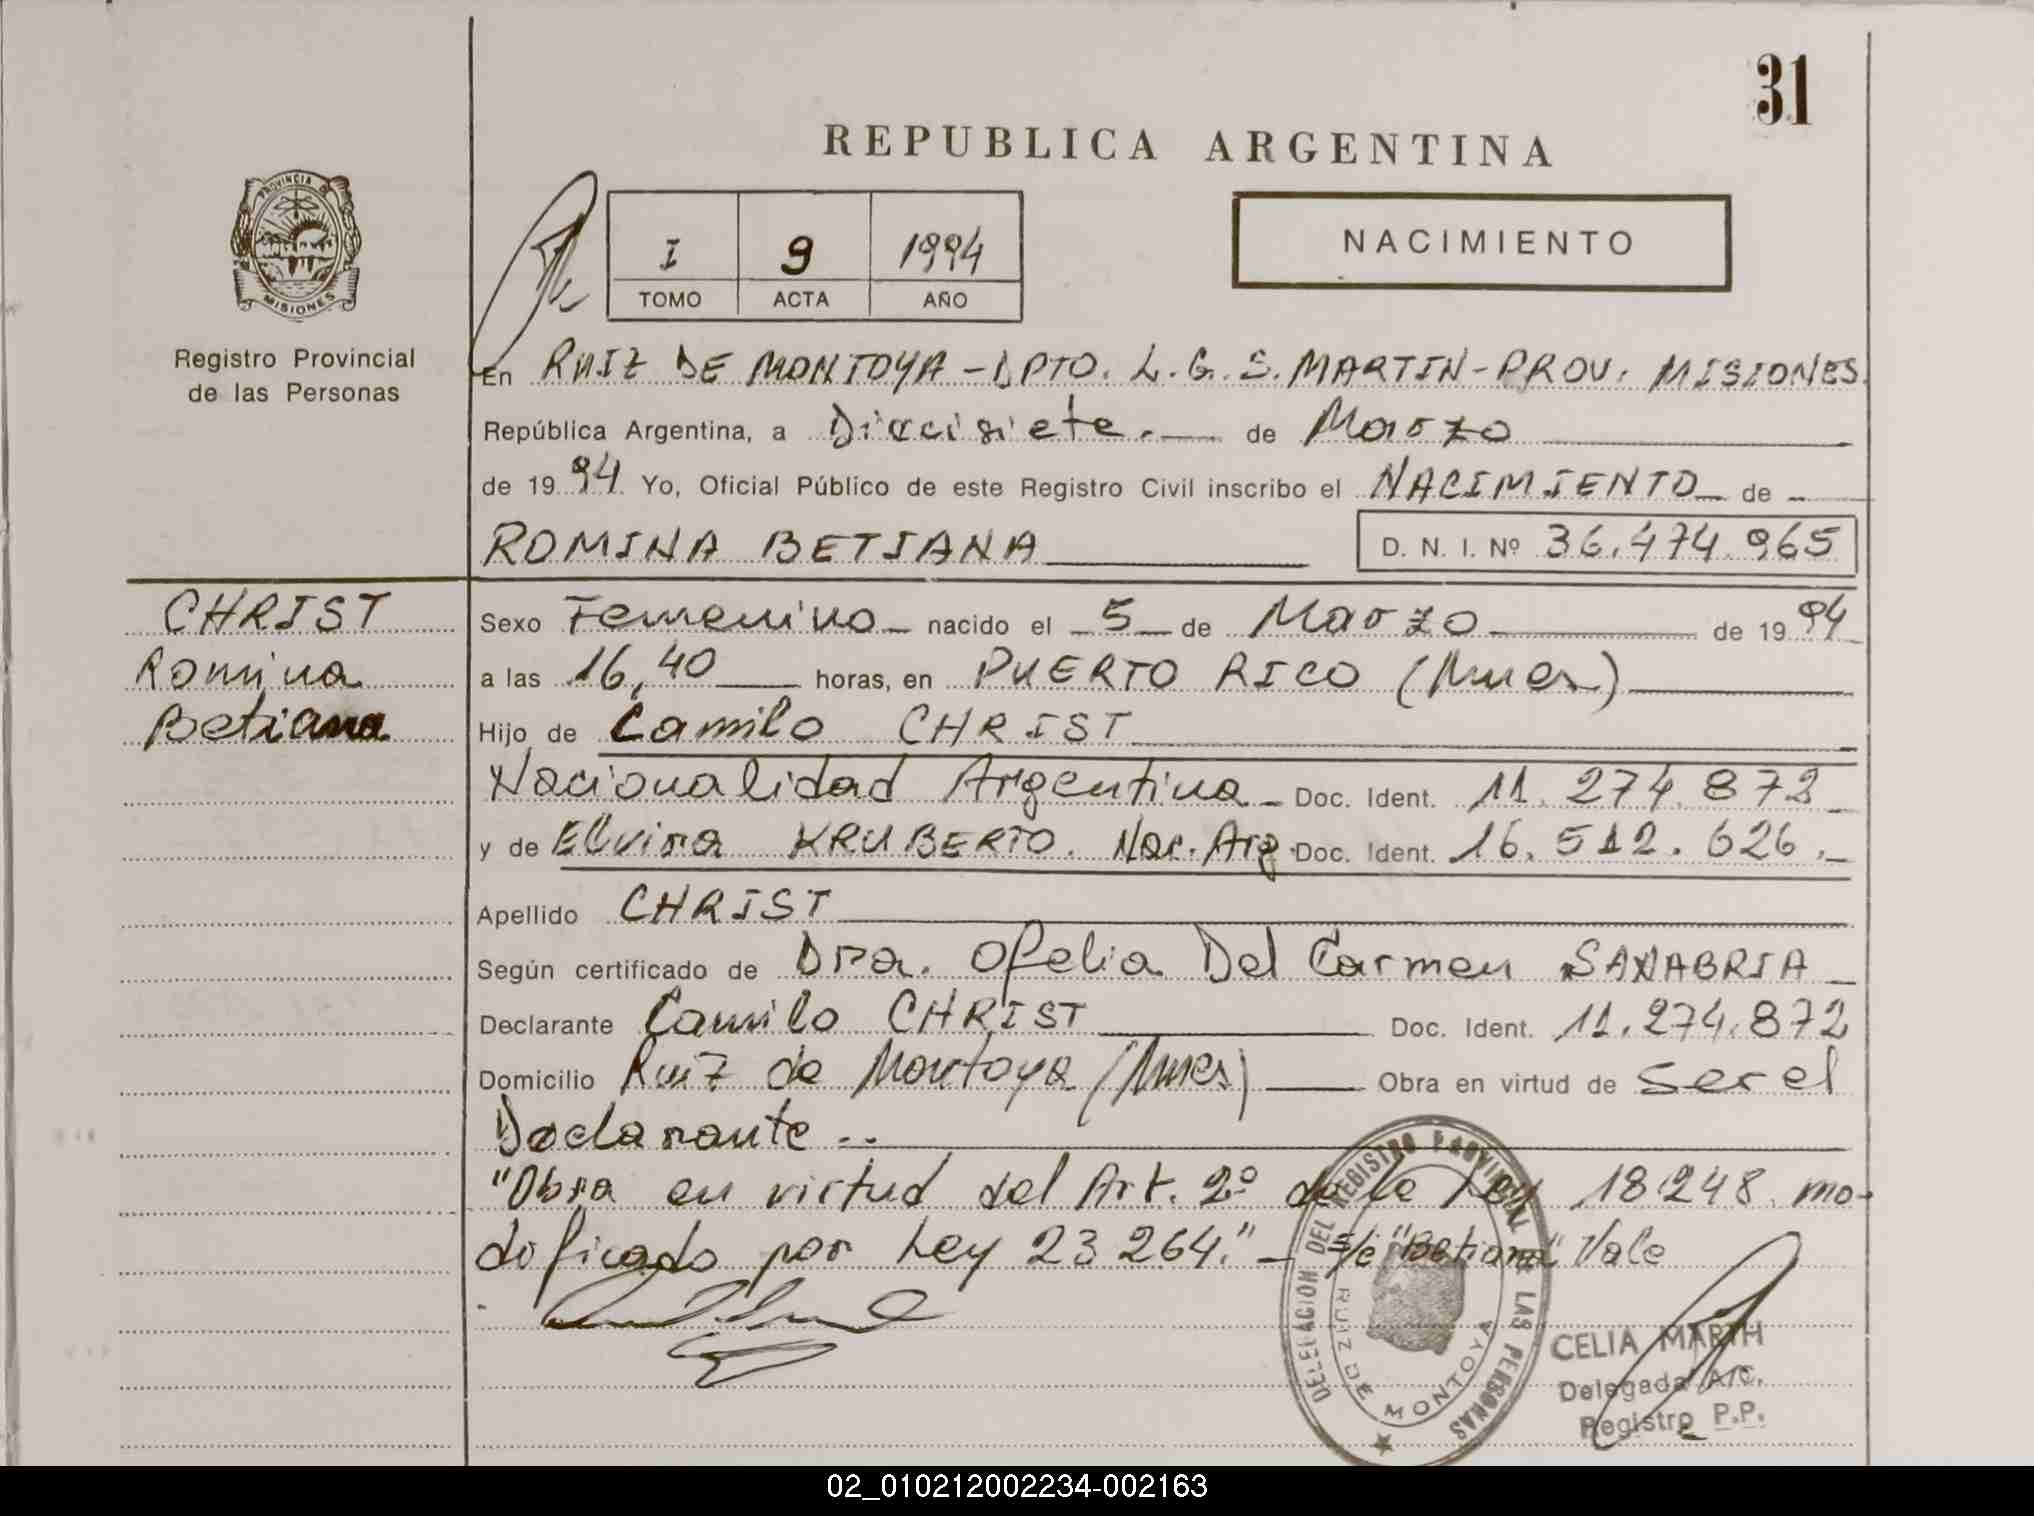 31
REPUBLICA ARGENTINA
PROVINCIA DE
MISIONES
I 9 1994
TOMO ACTA AÑO
NACIMIENTO
Registro Provincial
de las Personas
En RUIZ DE MONTOYA - DPTO. L. G. S. MARTIN - PROV. MISIONES.
República Argentina, a Diecisiete.- de Marzo
de 19 94 Yo, Oficial Público de este Registro Civil inscribo el NACIMIENTO de
ROMINA BETIANA D. N. I. Nº 36.474.965
CHRIST
Romina
Betiana
Sexo Femenino nacido el 5 de Marzo de 19 94
a las 16,40 horas, en PUERTO RICO (Mnes)
Hijo de Camilo CHRIST
Nacionalidad Argentina Doc. Ident. 11.274.872
y de Elvira KRUBERTO. Nac. Arg. Doc. Ident. 16.512.626.
Apellido CHRIST
Según certificado de Dra. Ofelia Del Carmen SANABRIA
Declarante Camilo CHRIST Doc. Ident. 11.274.872
Domicilio Ruiz de Montoya (Mnes) Obra en virtud de ser el
Declarante.-
"Obra en virtud del Art. 2º de la Ley 18.248. mo-
dificado por Ley 23.264." - S/e "Betiana" Vale
DELEGACION DEL REGISTRO PROVINCIAL DE LAS PERSONAS
RUIZ DE MONTOYA
CELIA MARTH
Delegada A/C.
Registro P.P.
02_010212002234-002163